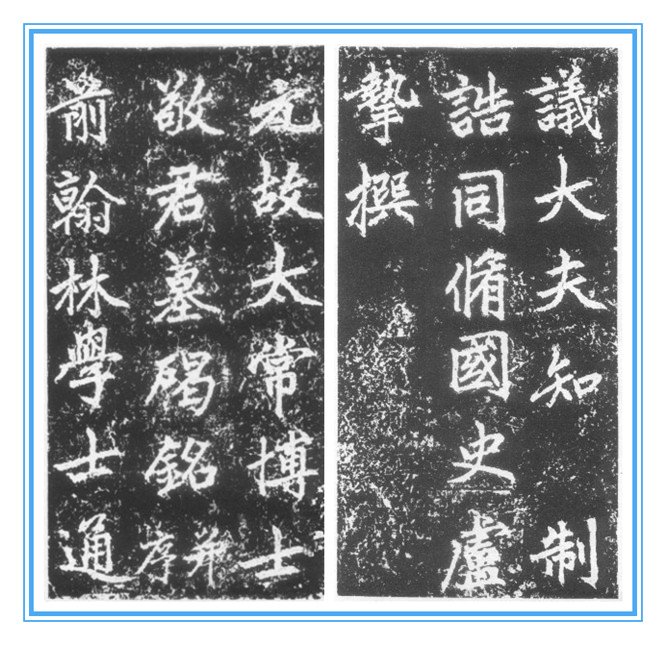 元故太常博士
敬君墓碣銘并序
前翰林學士通
議大夫知制
誥同脩國史盧
摯撰